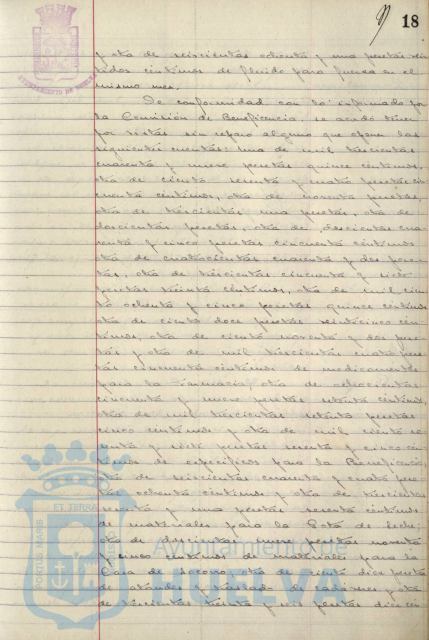 18
AYUNTAMIENTO DE HUELVA
y otra de seiscientas ochenta y una pesetas
céntimos de fluido para fuerza en el
mismo mes.
De conformidad con lo informado por
la Comisión de Beneficencia, se acordó tener
por vistas sin reparo alguno que oponer las
siguientes cuentas: una de mil trescientas
cuarenta y nueve pesetas quince céntimos,
otra de ciento sesenta y cuatro pesetas cin-
cuenta céntimos, otra de noventa pesetas,
otra de trescientas una pesetas, otra de
doscientas pesetas, otra de doscientas cua-
renta y cinco pesetas cincuenta céntimos
otra de cuatrocientas cuarenta y dos pese-
tas, otra de trescientas cincuenta y siete
pesetas treinta céntimos, otra de mil cien-
to ochenta y cinco pesetas quince céntimos
otra de ciento doce pesetas veinticinco cén-
timos, otra de ciento noventa y dos pese-
tas y otra de mil trescientas cuatro pese-
tas cincuenta céntimos de medicamentos
para la farmacia, otra de ochocientas
cincuenta y nueve pesetas setenta céntimos,
otra de mil trescientas setenta pesetas
cinco céntimos y otra de mil ciento se-
senta y siete pesetas sesenta y cinco cén-
timos de específicos para la Beneficencia,
otra de seiscientas cuarenta y cuatro pese-
tas ochenta céntimos y otra de trescientas
sesenta y una pesetas sesenta céntimos
de materiales para la Gota de leche;
otra de doscientas nueve pesetas noventa
y cinco céntimos de materiales para la
Casa de socorro, otra de ciento diez pesetas
de ataúdes y traslado de cadáveres y otra
de trescientas treinta y seis pesetas diez cén-
PORTUS MARIS ET TERRAE
Ayuntamiento de
HUELVA